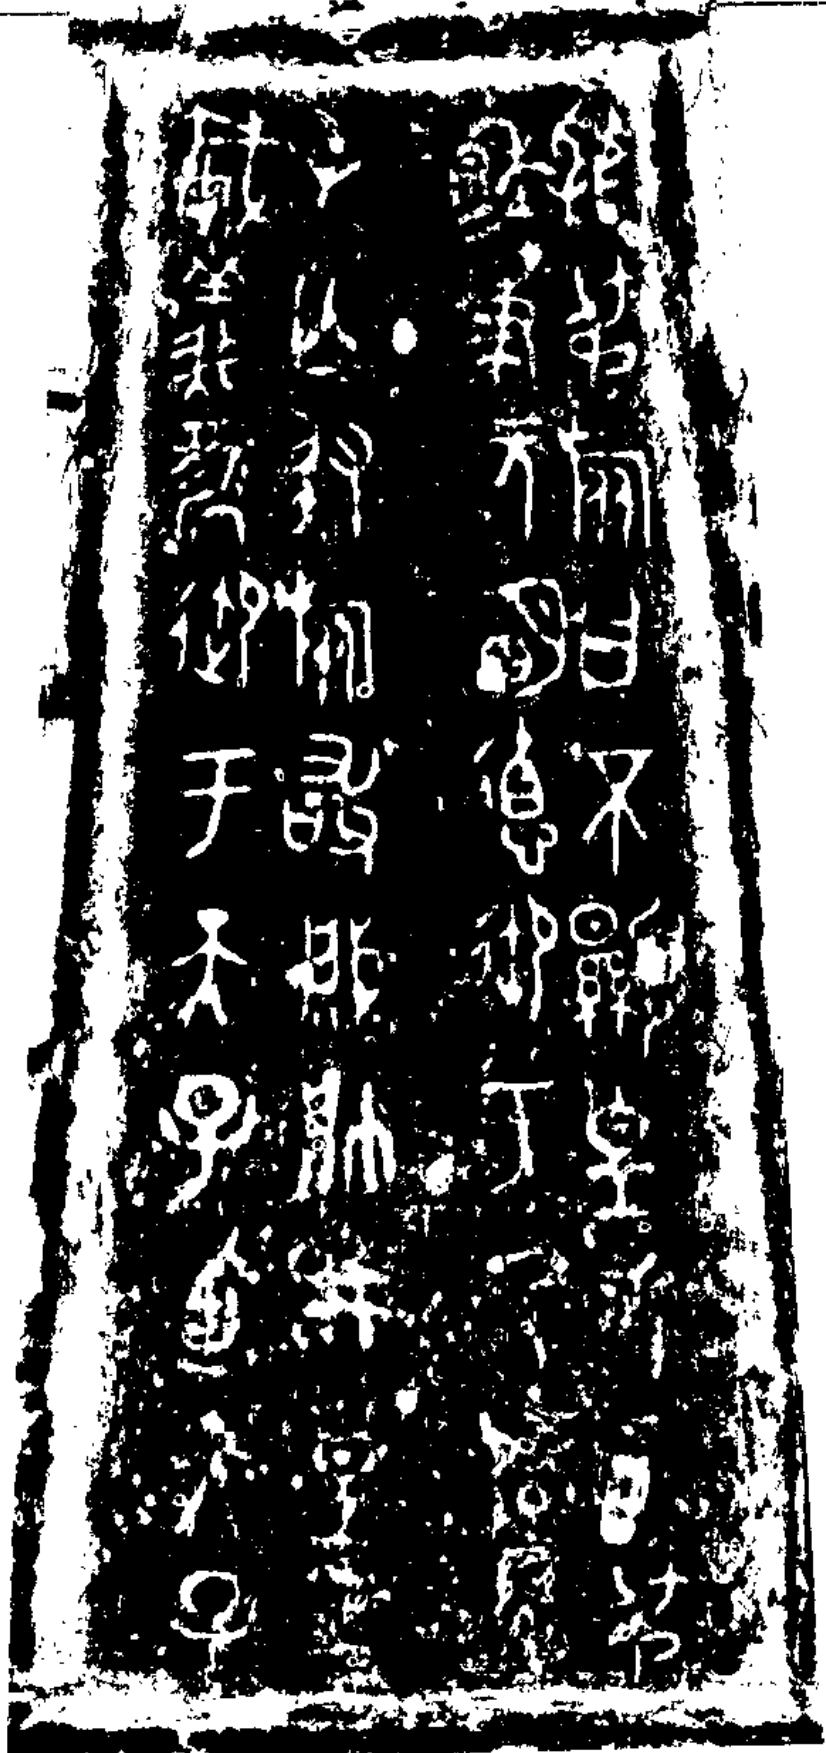 虢叔旅曰不顯皇考叀叔
穆穆秉元明德御于氒辟得
屯亡敃旅敢肇帥井皇考
威義御于天子廼天子